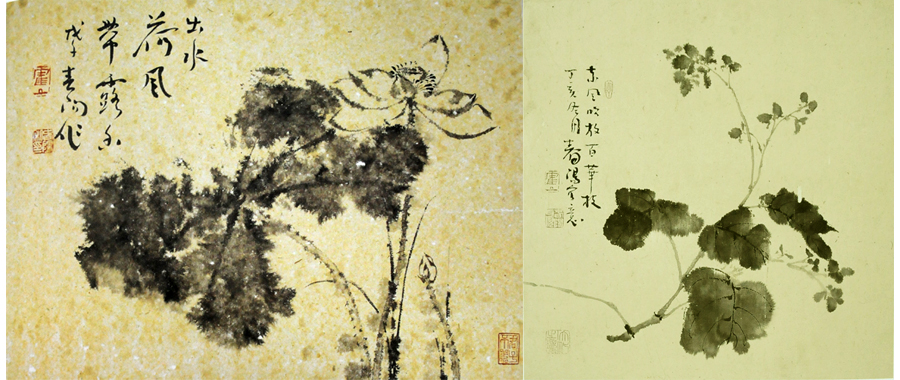 出水
荷风
带露香
戊子春作
东风吹放百華枝
丁亥冬月春陽写意